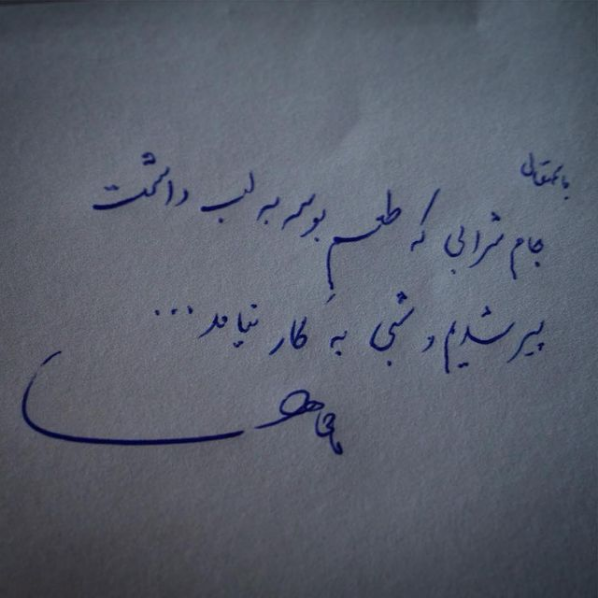 جام شرابی که طعم بوسه به لب داشت
پیر شدیم و شبی به کار نیامد...